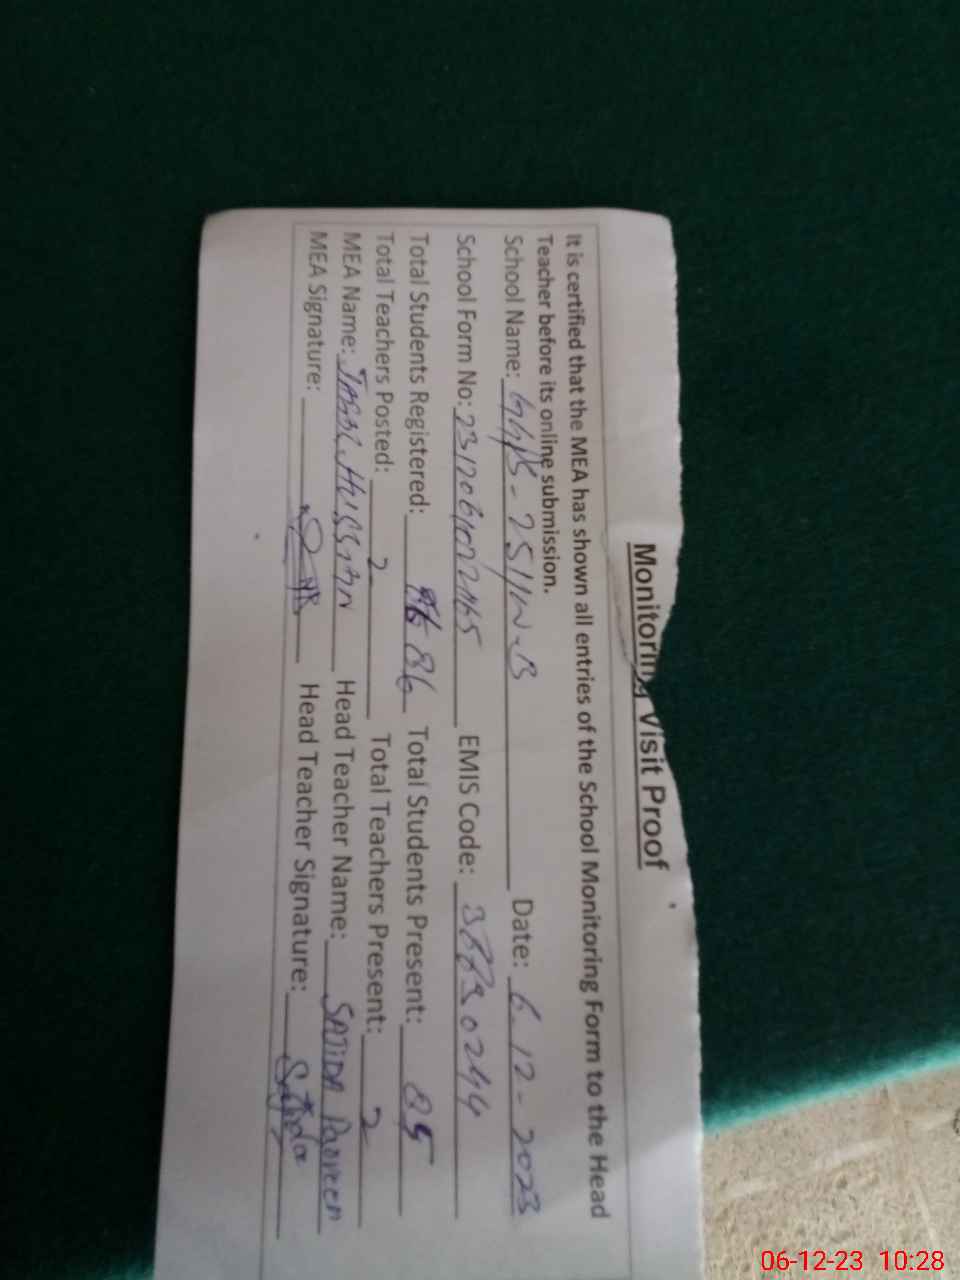 Monitoring Visit Proof
It is certified that the MEA has shown all entries of the School Monitoring Form to the Head
Teacher before its online submission.
School Name: GGPS-25/1W-B Date: 6-12-2023
School Form No: EMIS Code:
Total Students Registered: 86 Total Students Present: 85
Total Teachers Posted: 2 Total Teachers Present: 2
MEA Name: HUSSAIN Head Teacher Name: SAJIDA Parveen
MEA Signature: Head Teacher Signature: Sajida
06-12-23 10:28